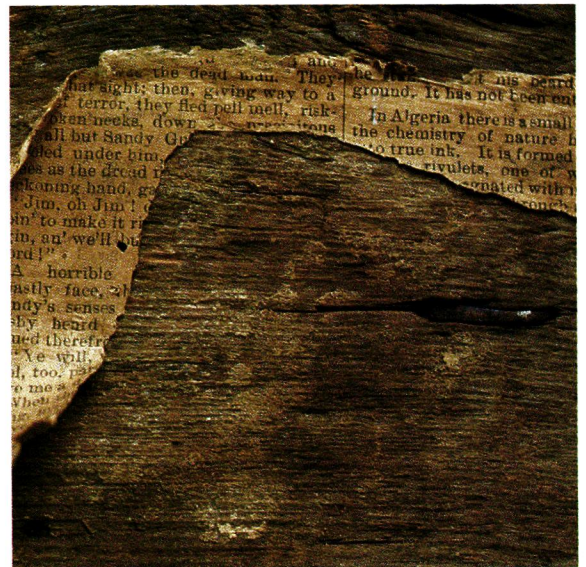 and
was the dead man. They
hat sight; then, giving way to a
terror, they fled pell mell, risk-
oken necks, down
all but Sandy Gu
led under him
es as the dread
ckoning hand, ga
Jim, oh Jim!
in' to make it ri
in, an' we'll
ord!"
A horrible
astly face,
ndy's senses
hy heard
ued therefro
Ye will,
l, too,
e me a
his beard
ground. It has not been
In Algeria there is a small
the chemistry of nature h
to true ink. It is formed
rivulets, one of w
gnated with